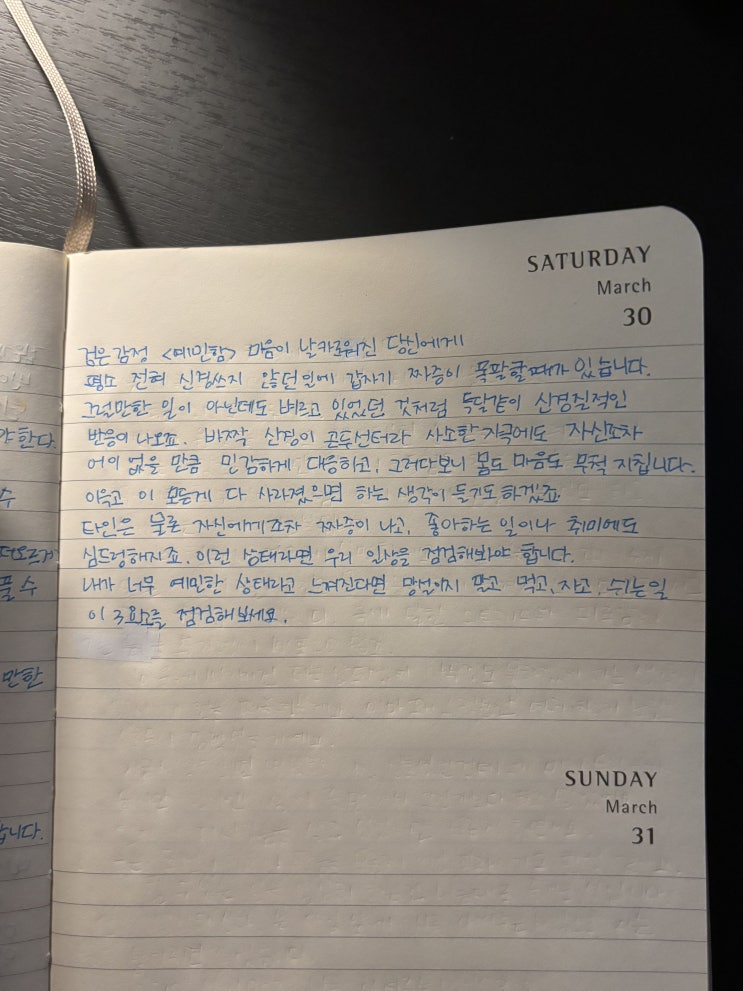 SATURDAY
March
30
검은감정 <예민함> 마음이 날카로워진 당신에게
평소 전혀 신경쓰지 않던 일에 갑자기 짜증이 폭팔할때가 있습니다.
그럴만한 일이 아닌데도 벼르고 있었던 것처럼 득달같이 신경질적인
반응이 나오죠. 바짝 신경이 곤두선터라 사소한 자극에도 자신조차
어이 없을 만큼 민감하게 대응하고, 그러다보니 몸도 마음도 무척 지칩니다.
이윽고 이 모든게 다 사라졌으면 하는 생각이 들기도 하겠죠
타인은 물론 자신에게조차 짜증이 나고, 좋아하는 일이나 취미에도
심드렁해지죠. 이런 상태라면 우리 일상을 점검해봐야 합니다.
내가 너무 예민한 상태라고 느껴진다면 망설이지 말고 먹고, 자고, 쉬는일
이 3요소를 점검해보세요.
SUNDAY
March
31
야한다.
수
떠오르게
풀 수
만한
습니다.